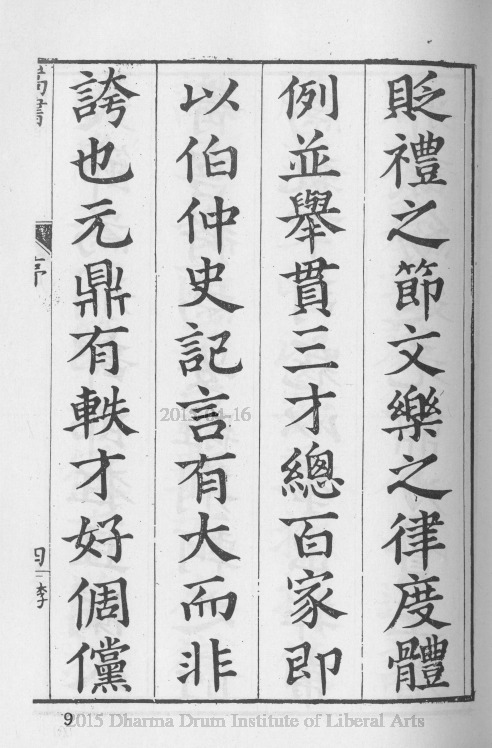 貶禮之節文樂之律度體
例並舉貫三才總百家即
以伯仲史記言有大而非
誇也元鼎有軼才好倜儻
序
四
李
2015-04-16
9
2015 Dharma Drum Institute of Liberal Arts